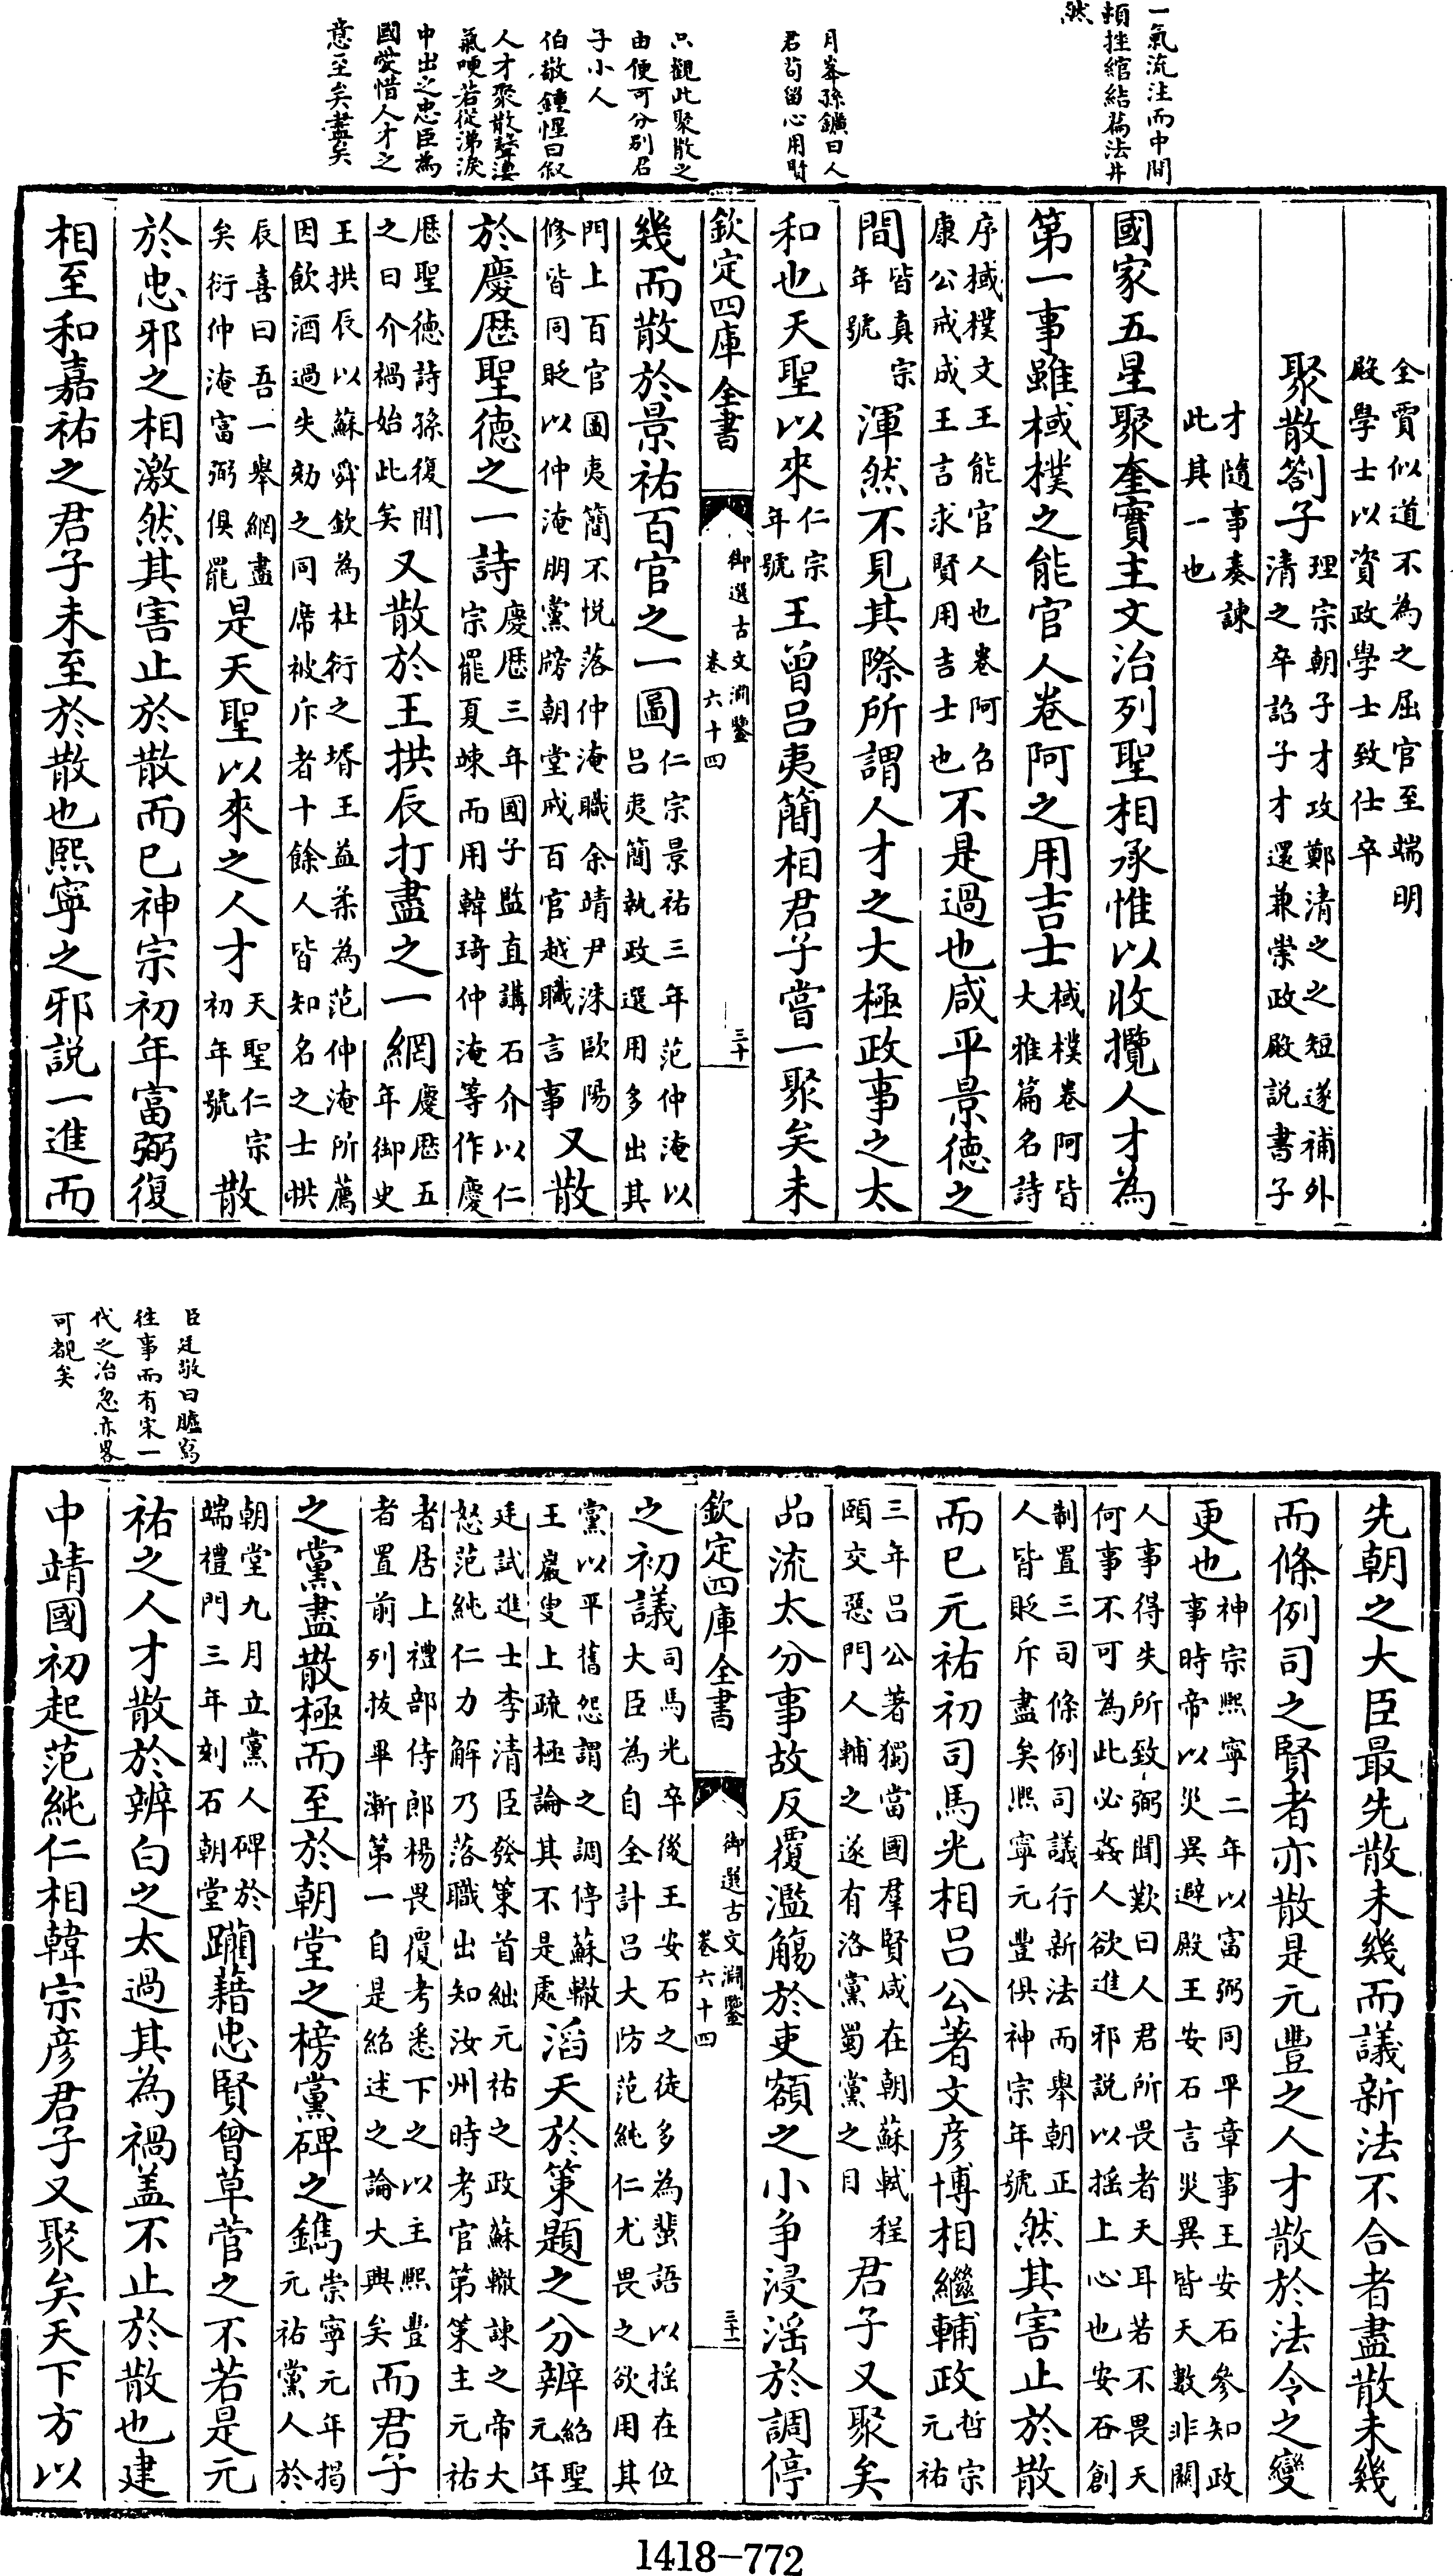 一氣流注而中間
頓挫綰結篇法井
然
月峯孫鑛曰人
君苟留心用賢
只觀此聚散之
由便可分别君
子小人
伯敬鍾惺曰叙
人才聚散聲淒
氣哽若從涕淚
中出之忠臣為
國愛惜人才之
意至矣盡矣
全賈似道不為之屈官至端明
殿學士以資政學士致仕卒
聚散劄子理宗朝子才攻鄭清之之短遂補外
清之卒詔子才還兼崇政殿説書子
才隨事奏諫
此其一也
國家五星聚奎實主文治列聖相承惟以收攬人才為
第一事雖棫樸之能官人卷阿之用吉士棫樸卷阿皆
大雅篇名詩
序棫樸文王能官人也卷阿召
康公戒成王言求賢用吉士也不是過也咸平景德之
間皆真宗
年號渾然不見其際所謂人才之大極政事之太
和也天聖以來仁宗
年號王曾吕夷簡相君子嘗一聚矣未
欽定四庫全書
御選古文淵鑒
卷六十四
三十
幾而散於景祐百官之一圖仁宗景祐三年范仲淹以
吕夷簡執政選用多出其
門上百官圖夷簡不悦落仲淹職余靖尹洙歐陽
修皆同貶以仲淹朋黨牓朝堂戒百官越職言事又散
於慶歴聖德之一詩慶歴三年國子監直講石介以仁
宗罷夏竦而用韓琦仲淹等作慶
歴聖德詩孫復聞
之曰介禍始此矣又散於王拱辰打盡之一網慶歴五
年御史
王拱辰以蘇舜欽為杜衍之壻王益柔為范仲淹所薦
因飲酒過失劾之同席被斥者十餘人皆知名之士拱
辰喜曰吾一舉網盡
矣衍仲淹富弼俱罷是天聖以來之人才天聖仁宗
初年號散
於忠邪之相激然其害止於散而已神宗初年富弼復
相至和嘉祐之君子未至於散也熙寧之邪説一進而
臣廷敬曰臚寫
往事而有宋一
代之治忽亦畧
可覩矣
先朝之大臣最先散未幾而議新法不合者盡散未幾
而條例司之賢者亦散是元豐之人才散於法令之變
更也神宗熙寧二年以富弼同平章事王安石參知政
事時帝以災異避殿王安石言災異皆天數非關
人事得失所致弼聞歎曰人君所畏者天耳若不畏天
何事不可為此必姦人欲進邪説以揺上心也安石創
制置三司條例司議行新法而舉朝正
人皆貶斥盡矣熙寧元豐俱神宗年號然其害止於散
而已元祐初司馬光相吕公著文彦博相繼輔政哲宗
元祐
三年吕公著獨當國羣賢咸在朝蘇軾程
頤交惡門人輔之遂有洛黨蜀黨之目君子又聚矣
品流太分事故反覆濫觴於吏額之小争浸滛於調停
欽定四庫全書
御選古文淵鑒
卷六十四
三十一
之初議司馬光卒後王安石之徒多為蜚語以揺在位
大臣為自全計吕大防范純仁尤畏之欲用其
黨以平舊怨謂之調停蘇轍
王巖叟上疏極論其不是處滔天於策題之分辨紹聖
元年
廷試進士李清臣發策首絀元祐之政蘇轍諫之帝大
怒范純仁力解乃落職出知汝州時考官第策主元祐
者居上禮部侍郎楊畏覆考悉下之以主熙豐
者置前列拔畢漸第一自是紹述之論大興矣而君子
之黨盡散極而至於朝堂之榜黨碑之鐫崇寧元年揭
元祐黨人於
朝堂九月立黨人碑於
端禮門三年刻石朝堂躪藉忠賢曾草菅之不若是元
祐之人才散於辨白之太過其為禍盖不止於散也建
中靖國初起范純仁相韓宗彦君子又聚矣天下方以
1418-772